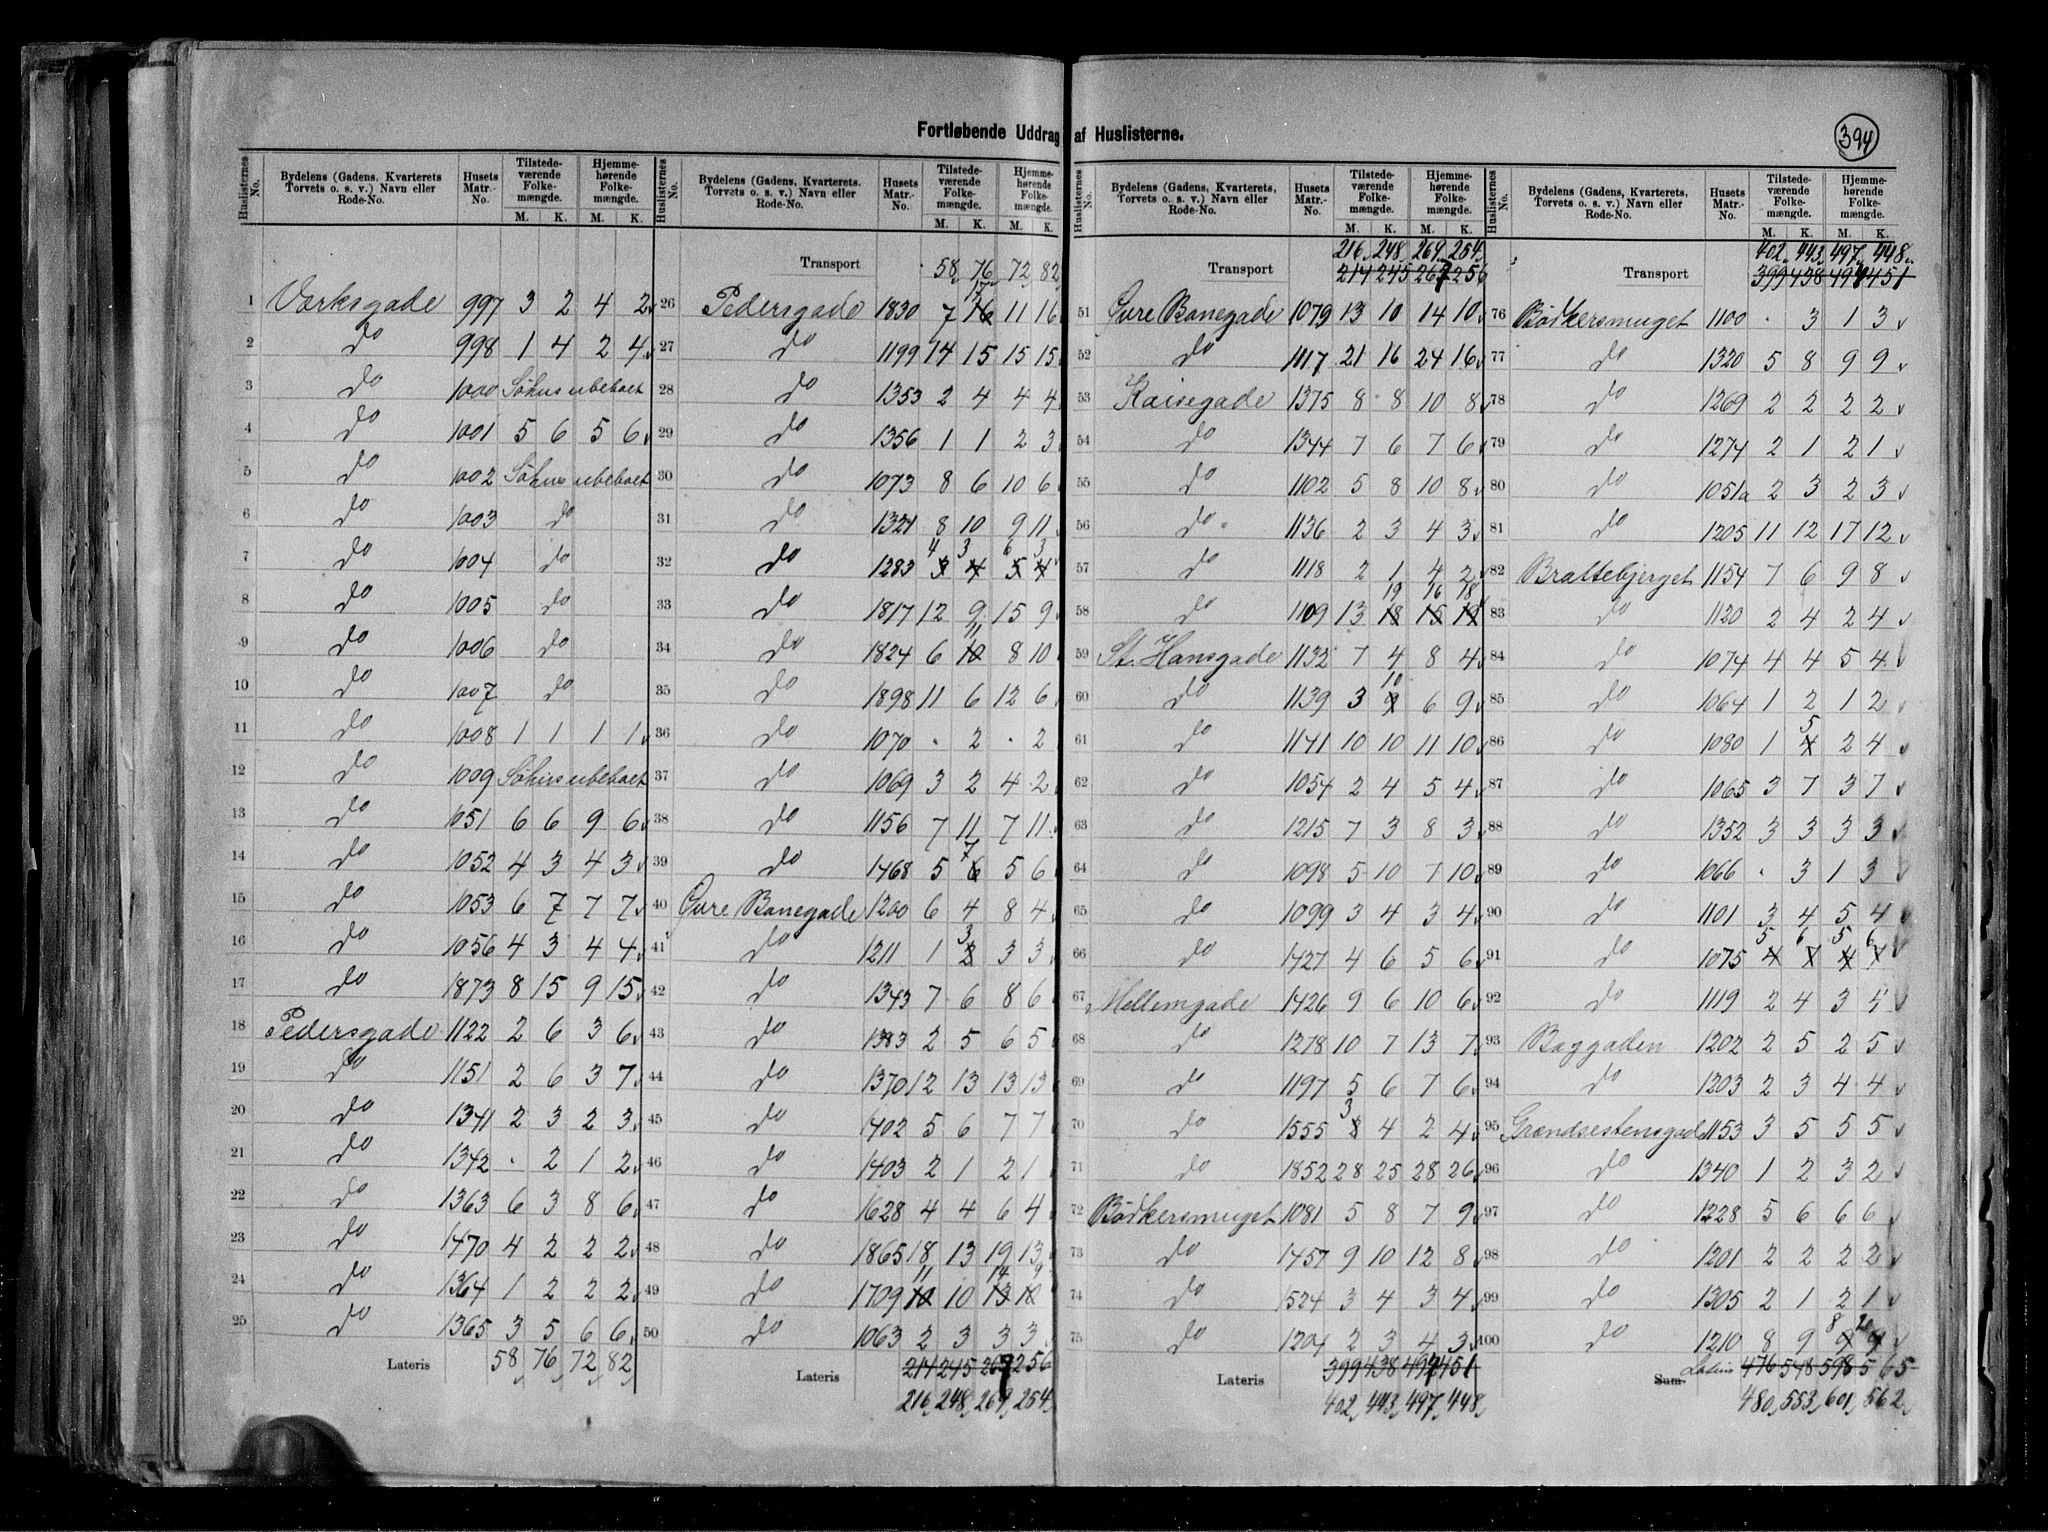 394
Fortløbende Uddrag af Huslisterne.
Huslisternes No. Bydelens (Gadens, Kvarterets, Torvets o. s. v.) Navn eller Rode-No. Husets Matr.-No. Tilstedeværende Folkemængde. M. K. Hjemmehørende Folkemængde. M. K.
1 Verksgade 997 3 2 4 2
2 do 998 1 4 2 4
3 do 1000 Söhus ubeboet
4 do 1001 5 6 5 6
5 do 1002 Söhus ubeboet
6 do 1003 do
7 do 1004 do
8 do 1005 do
9 do 1006 do
10 do 1007 do
11 do 1008 1 1 1 1
12 do 1009 Söhus ubeboet
13 do 1051 6 6 9 6
14 do 1052 4 3 4 3
15 do 1053 6 7 7 7
16 do 1056 4 3 4 4
17 do 1873 8 15 9 15
18 Pedersgade 1122 2 6 3 6
19 do 1151 2 6 3 7
20 do 1341 2 3 2 3
21 do 1342 . 2 1 2
22 do 1363 6 3 8 6
23 do 1470 4 2 2 2
24 do 1364 1 2 2 2
25 do 1365 3 5 6 6
Lateris 58 76 72 82
Huslisternes No. Bydelens (Gadens, Kvarterets, Torvets o. s. v.) Navn eller Rode-No. Husets Matr.-No. Tilstedeværende Folkemængde. M. K. Hjemmehørende Folkemængde. M. K.
Transport 58 76 72 82
26 Pedersgade 1830 7 16 17 11 16
27 do 1199 14 15 15 15
28 do 1353 2 4 4 4
29 do 1356 1 1 2 3
30 do 1073 8 6 10 6
31 do 1321 8 10 9 11
32 do 1283 3 4 4 3 5 6 4 3
33 do 1817 12 9 15 9
34 do 1824 6 10 11 8 10
35 do 1898 11 6 12 6
36 do 1070 . 2 . 2
37 do 1069 3 2 4 2
38 do 1156 7 11 7 11
39 do 1468 5 6 7 5 6
40 Övre Banegade 1200 6 4 8 4
41 do 1211 1 2 3 3 3
42 do 1343 7 6 8 6
43 do 1383 2 5 6 5
44 do 1370 12 13 13 13
45 do 1402 5 6 7 7
46 do 1403 2 1 2 1
47 do 1628 4 4 6 4
48 do 1865 18 13 19 13
49 do 1709 10 11 10 13 14 10 9
50 do 1063 2 3 3 3
Lateris 214 245 267 256
216 248 269 254
Huslisternes No. Bydelens (Gadens, Kvarterets, Torvets o. s. v.) Navn eller Rode-No. Husets Matr.-No. Tilstedeværende Folkemængde. M. K. Hjemmehørende Folkemængde. M. K.
216 248 269 254
Transport 214 245 267 256
51 Övre Banegade 1079 13 10 14 10
52 do 1117 21 16 24 16
53 Kaisegade 1375 8 8 10 8
54 do 1344 7 6 7 6
55 do 1102 5 8 10 8
56 do 1136 2 3 4 3
57 do 1118 2 1 4 2
58 do 1109 13 18 19 15 16 19 18
59 St. Hansgade 1132 7 4 8 4
60 do 1139 3 9 10 6 9
61 do 1141 10 10 11 10
62 do 1054 2 4 5 4
63 do 1215 7 3 8 3
64 do 1098 5 10 7 10
65 do 1099 3 4 3 4
66 do 1427 4 6 5 6
67 Mellemgade 1426 9 6 10 6
68 do 1278 10 7 13 7
69 do 1197 5 6 7 6
70 do 1555 2 3 4 2 4
71 do 1852 28 25 28 26
72 Bödkersmuget 1081 5 8 7 9
73 do 1457 9 10 12 8
74 do 1524 3 4 3 4
75 do 1204 2 3 4 3
Lateris 399 438 497 451
402 443 497 448
Huslisternes No. Bydelens (Gadens, Kvarterets, Torvets o. s. v.) Navn eller Rode-No. Husets Matr.-No. Tilstedeværende Folkemængde. M. K. Hjemmehørende Folkemængde. M. K.
402 443 497 448
Transport 399 438 497 451
76 Bödkersmuget 1100 . 3 1 3
77 do 1320 5 8 9 9
78 do 1269 2 2 2 2
79 do 1274 2 1 2 1
80 do 1051a 2 3 2 3
81 do 1205 11 12 17 12
82 Brattebjerget 1154 7 6 9 8
83 do 1120 2 4 2 4
84 do 1074 4 4 5 4
85 do 1064 1 2 1 2
86 do 1080 1 4 5 2 4
87 do 1065 3 7 3 7
88 do 1352 3 3 3 3
89 do 1066 . 3 1 3
90 do 1101 3 4 5 4
91 do 1075 4 5 7 6 4 5 7 6
92 do 1119 2 4 3 4
93 Baggaden 1202 2 5 2 5
94 do 1203 2 3 4 4
95 Grændsestensgad 1153 3 5 5 5
96 do 1340 1 2 3 2
97 do 1228 5 6 6 6
98 do 1201 2 2 2 2
99 do 1305 2 1 2 1
100 do 1210 8 9 9 8 9 10
Sum Lateris 476 548 598 565
480 553 601 562